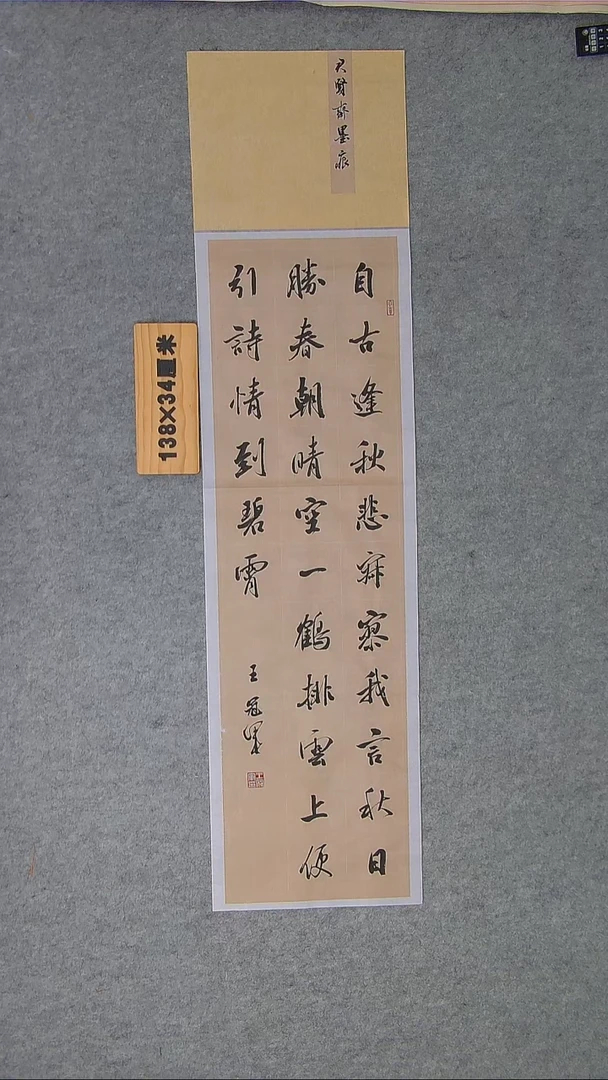 賢齋墨痕
自古逢秋悲寂寥我言秋日
勝春朝晴空一鶴排雲上便
引詩情到碧霄
王冠
138×34厘米